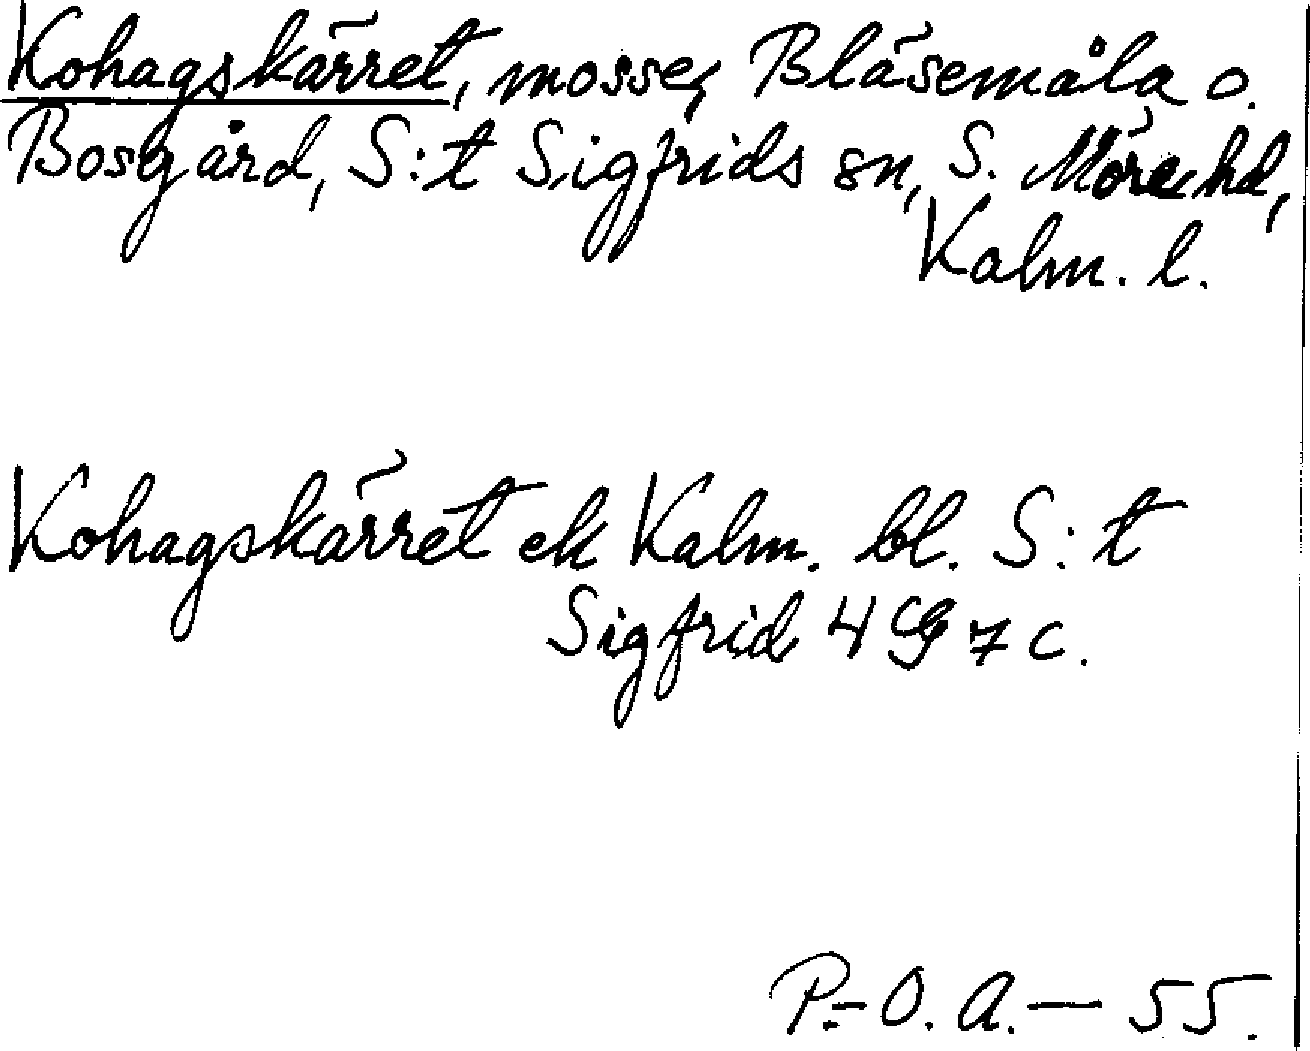 Kohagskärret, mosse, Bläsemåla o.
Bosgård, S:t Sigfrids sn, S. Möre hd,
Kalm. l.
Kohagskärret ek Kalm. bl. S:t
Sigfrid 4G7c.
P.-O. A. — 55.